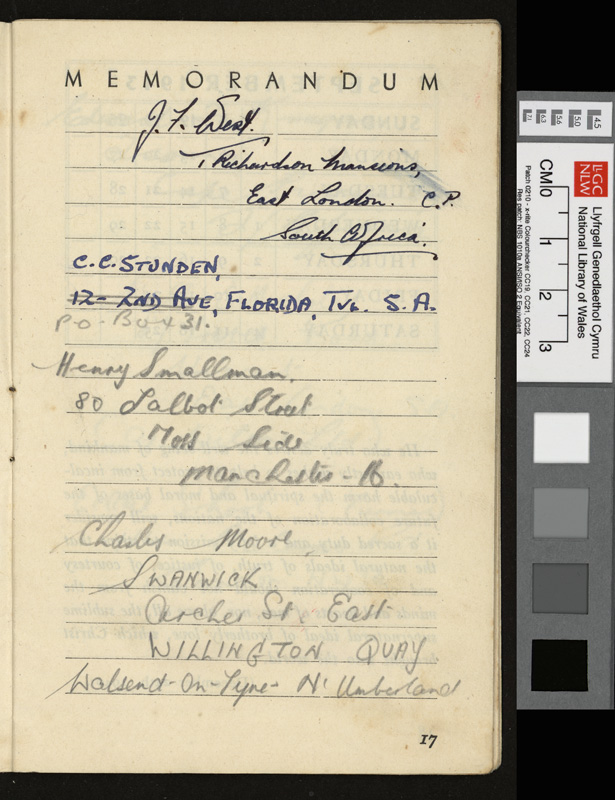 MEMORANDUM
J. F. West.
1 Richardson Mansions,
East London. C.P.
South Africa.
C.C. STUNDEN,
12 - 2ND AVE, FLORIDA, TVL. S.A.
P.O. Box 31.
Henry Smallman.
80 Talbot Street
Moss Side
Manchester - 16
Charles Moore
SWANWICK
Archer St. East
WILLINGTON QUAY
Walsend-On-Tyne- N'Umberland
17
LLGC
NLW
Llyfrgell Genedlaethol Cymru
National Library of Wales
CM 0 1 2 3